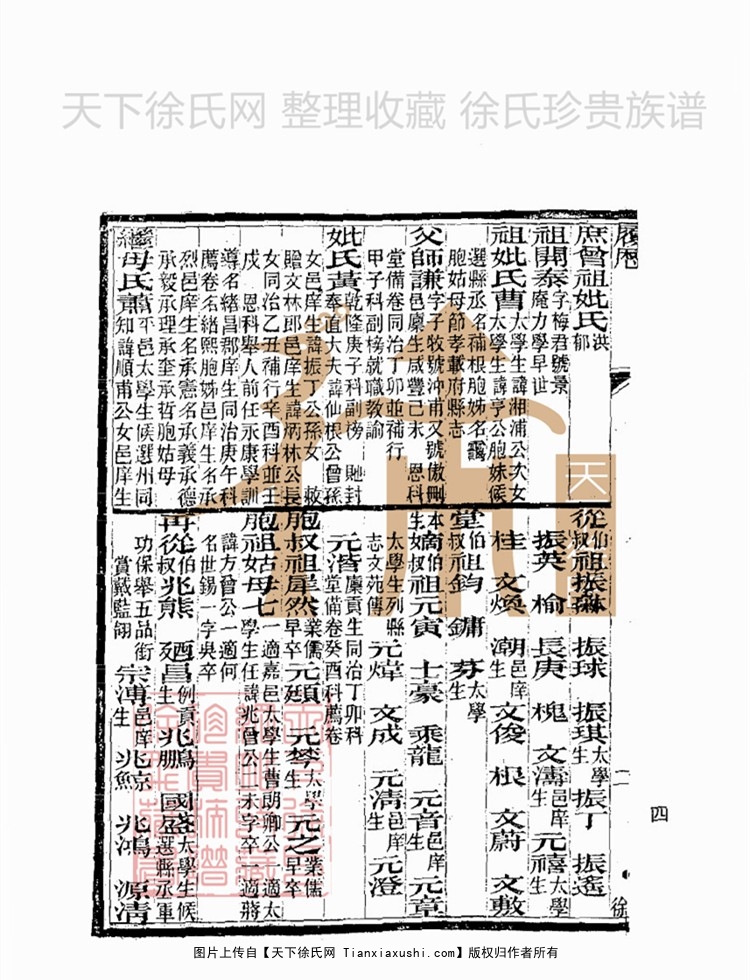 天下徐氏网 整理收藏 徐氏珍贵族谱
履历
庶曾祖妣氏洪郁
祖開泰字梅君號景庵力學早世
祖妣氏曹太學生諱湘浦公次女太學生諱亨公胞妹候
選縣丞名稱根胞姊名靄
胞姑母節孝載府縣志
父師謙字子牧號沖甫又號傲刪本
譜邑廩生咸豐己未 恩科
堂備卷同治丁卯並補行
甲子科副榜就職教諭
妣氏黃乾隆庚子科副榜 貤封奉直大夫諱仙根公曾孫
女邑庠生諱振丁公孫女 敕
贈文林郎邑庠生諱炳林公長
女同治乙丑補行辛酉科並壬
戌 恩科舉人前任永康學訓
導名緒昌郡庠生同治庚午科
薦卷名緒熙胞姊邑庠生名承
烈邑庠生名承憲名承義承德
承毅承理承奎承哲胞姑母
繼母氏蕭平邑太學生候選州同知諱順甫公女邑庠生
從伯叔祖振琳 振球 振琪太學生 振丁 振遙
振英 榆 長庚 槐 文濤邑庠生 元禧太學生
桂 文煥 潮邑庠生 文俊 根 文蔚 文敷
堂伯叔祖鈞 鏞 芬太學生
嫡伯叔祖元寅 士豪 乘龍 元音邑庠生 元章
太學生列縣志文苑傳 元煒 文成 元清邑庠生 元澄
元潽廩貢生同治丁卯科堂備卷癸酉科薦卷
胞叔祖犀然業儒早卒 元頲 元棽太學生 元之業儒早卒
胞祖姑母七一適嘉邑太學生曹朗卿公一適太學生任諱兆曾公二未字卒一適蔣
諱方曾公一適何
名世錫一字吳卒
再從伯叔兆熊 廼昌例貢生 兆鵬 國盛太學生候選縣丞軍
功保舉五品銜
賞戴藍翎 宗溥邑庠生 兆鯨 兆鴻 源清
四
徐
图片上传自【天下徐氏网 Tianxiaxushi.com】版权归作者所有